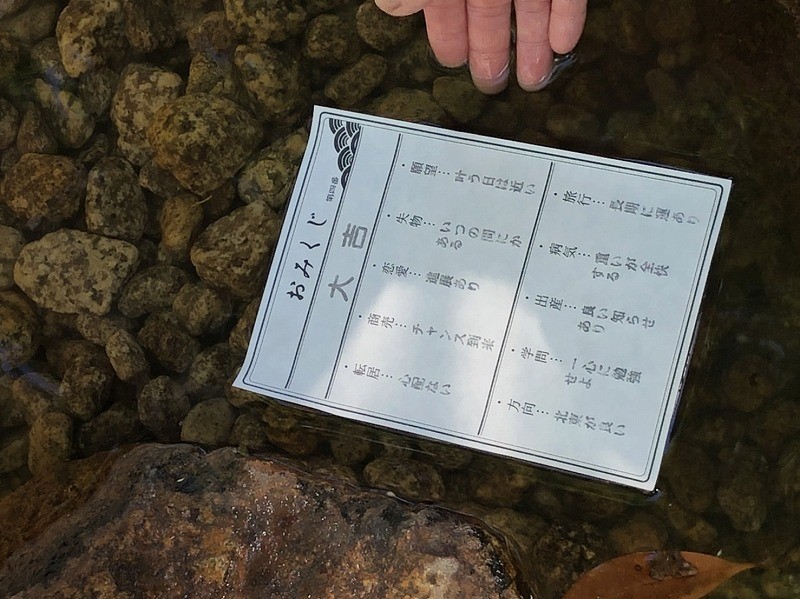 おみくじ
第四番
大吉
・願望…叶う日は近い
・失物…いつの間にか
ある
・恋愛…進展あり
・商売…チャンス到来
・転居…心配ない
・旅行…長期に運あり
・病気…重いが全快
する
・出産…良い知らせ
あり
・学問…一心に勉強
せよ
・方向…北東が良い